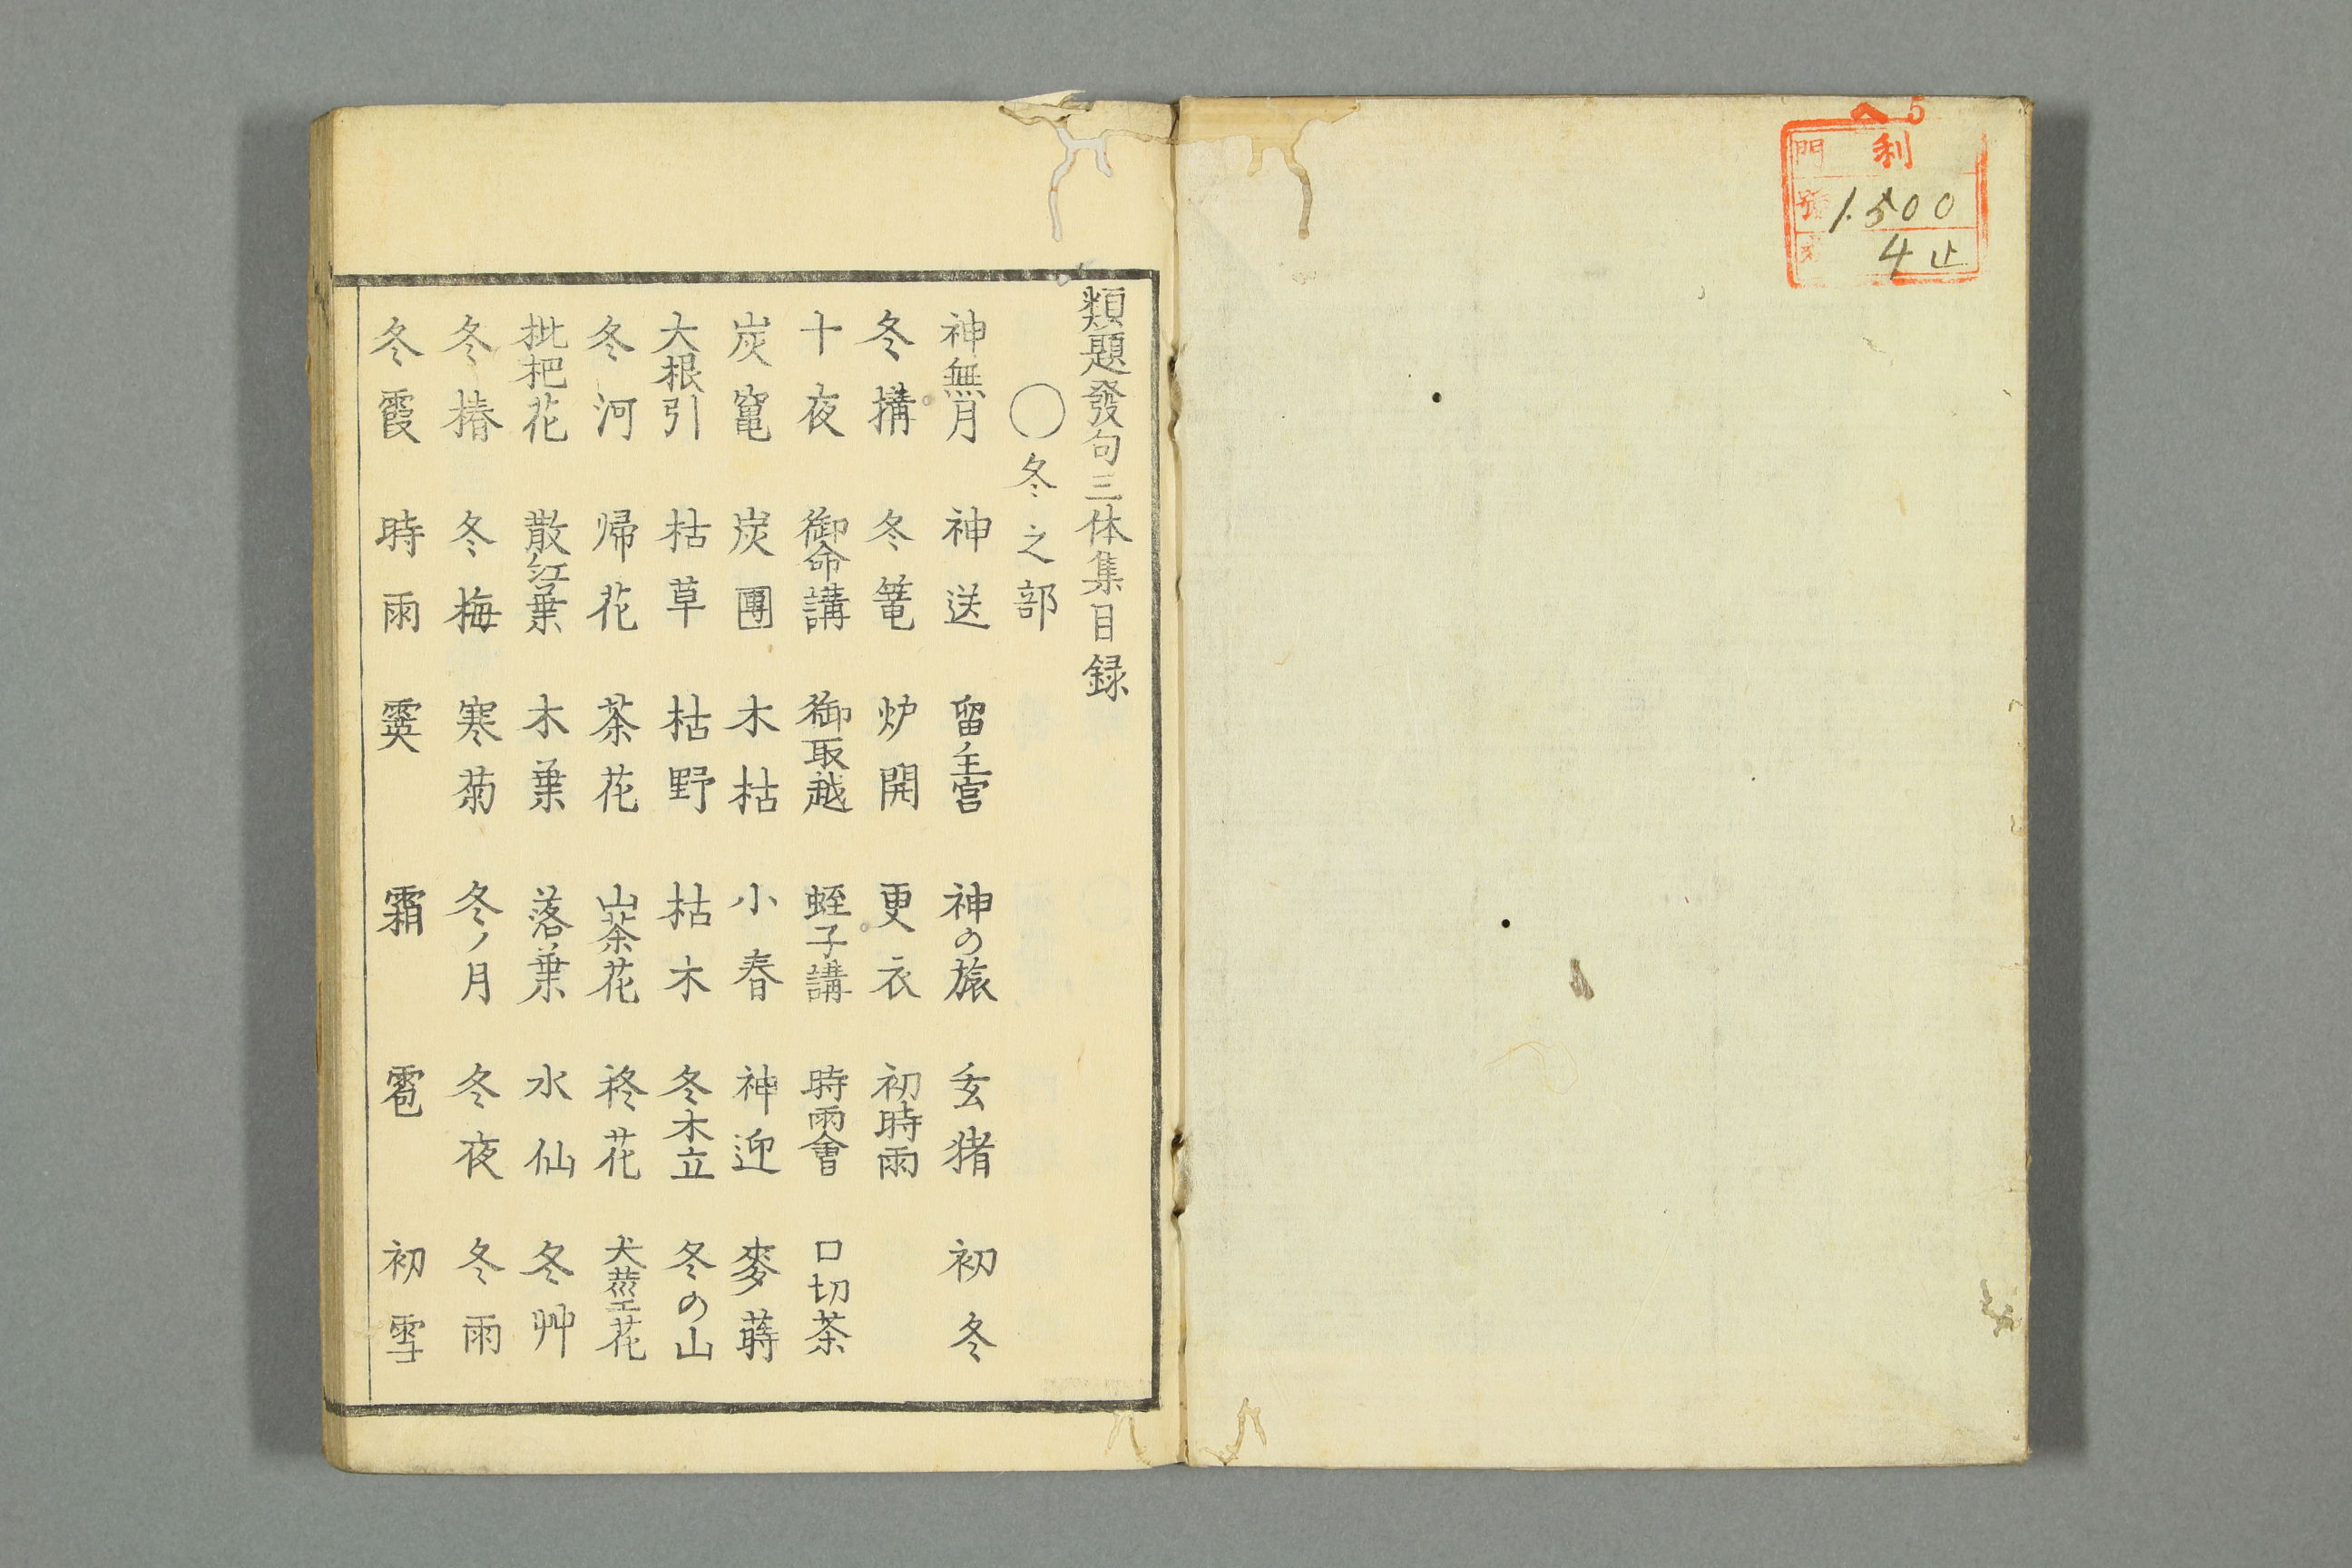 ヘ5
門 利
號 1500
4止
類題發句三体集目録
○冬之部
神無月 神送 留主宮 神の旅 玄猪 初冬
冬搆 冬篭 炉開 更衣 初時雨
十夜 御命講 御取越 蛭子講 時雨會 口切茶
炭竃 炭團 木枯 小春 神迎 麥蒔
大根引 枯草 枯野 枯木 冬木立 冬の山
冬河 帰花 茶花 山茶花 柊花 犬蓼花
枇杷花 散紅葉 木葉 落葉 水仙 冬艸
冬椿 冬梅 寒菊 冬ノ月 冬夜 冬雨
冬霞 時雨 霙 霜 雹 初雪